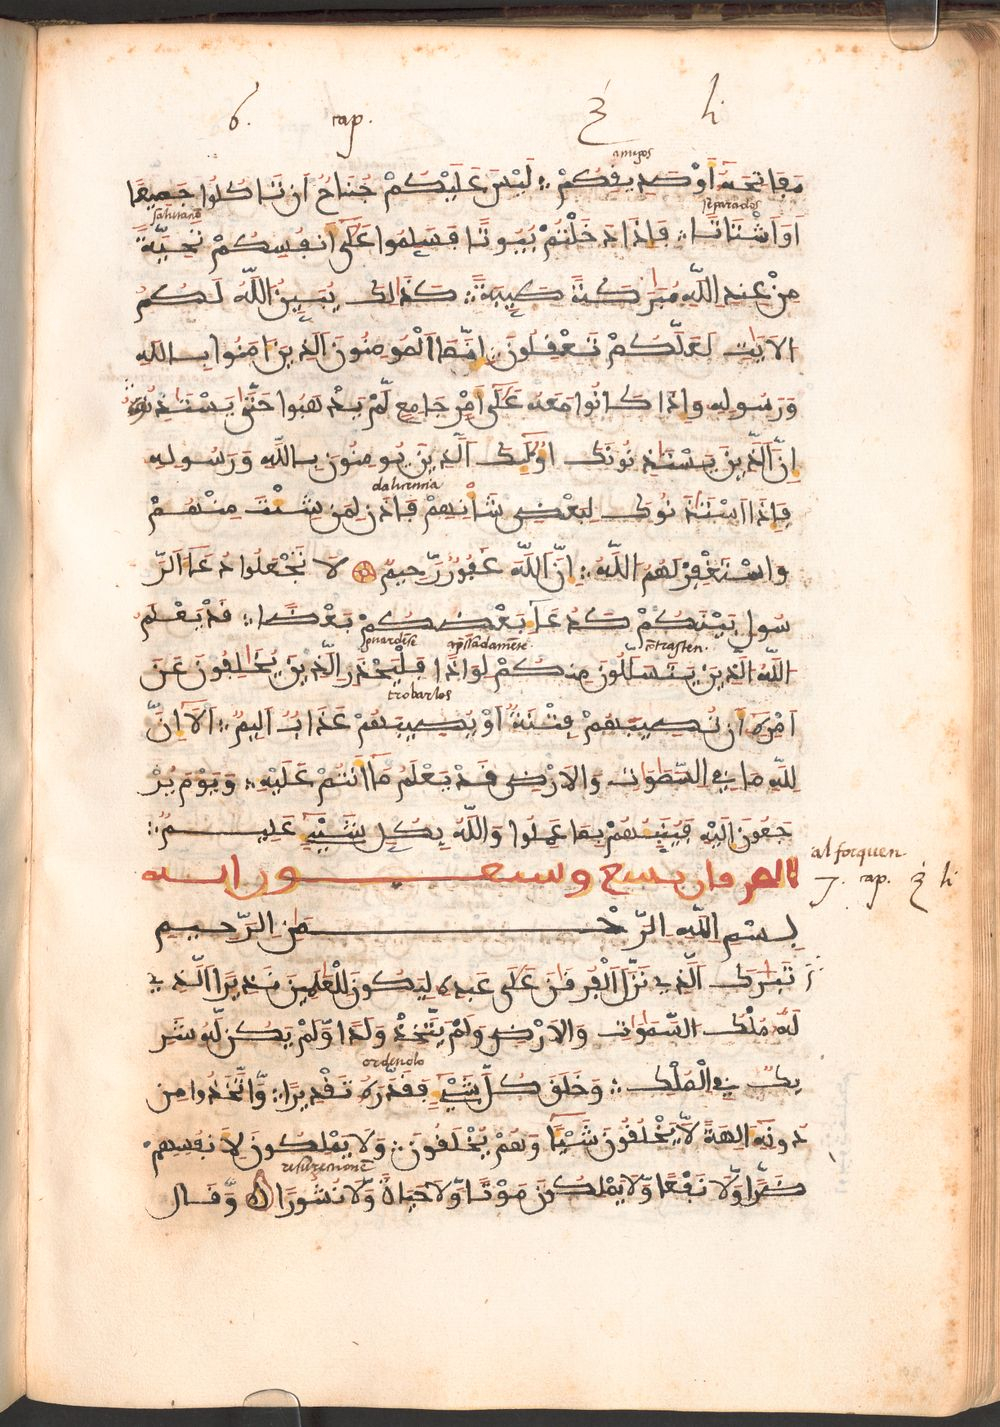 6. cap. 3 li
amigos
مَفَاتِحَهُۥ أَوْ صَدِيفِكُمْ لَيْسَ عَلَيْكُمْ جُنَاحٌ اَن تَاكُلُوا جَمِيعًا
separados
اَوَاشْتَاتًا فَإِذَا دَخَلْتُمْ بُيُوتًا فَسَلِمُوا عَلَى أَنفُسِكُمْ تَحِيَّةً
مِنْ عِندِ اللَّهِ مُبَٰرَكَةً طَيِّبَةً كَذَٰلِكَ يُبَيِّنُ اللَّهُ لَكُمُ
الَايَٰتِ لَعَلَّكُمْ تَعْفِلُونَ إِنَّمَا الْمُومِنُونَ الَّذِينَ ءَامَنُوا بِاللَّهِ
وَرَسُولِهِ وَإِذَا كَانُوا مَعَهُ عَلَىٰ أَمْرٍ جَامِعٍ لَّمْ يَذْهَبُوا حَتَّىٰ يَسْتَٰذِنُوهُ
اِنَّ الَّذِينَ يَسْتَٰذِنُونَكَ أُوْلَٰئِكَ الَّذِينَ يُومِنُونَ بِاللَّهِ وَرَسُولِهِ
dalicencia
فَإِذَا اسْتَٰذَنُوكَ لِبَعْضِ شَأْنِهِمْ فَاذَن لِّمَن شِئْتَ مِنْهُمْ
وَاسْتَغْفِرْ لَهُمُ اللَّهَ إِنَّ اللَّهَ غَفُورٌ رَّحِيمٌ لَا تَجْعَلُوا دُعَاءَ الرَّ
سُولِ بَيْنَكُمْ كَدُعَاءِ بَعْضِكُمْ بَعْضًا فَدْ يَعْلَمُ
guardese contrasten.
اللَّهُ الَّذِينَ يَتَسَلَّلُونَ مِنكُمْ لِوَاذًا فَلْيَحْذَرِ الَّذِينَ يُخَالِفُونَ عَنَ
trobarlos
اَمْرِهِ أَن تُصِيبَهُمْ فِتْنَةٌ أَوْ يُصِيبَهُمْ عَذَابٌ اَلِيمٌ أَلَا إِنَّ
لِلَّهِ مَا فِي السَّمَٰوَٰتِ وَالَارْضِ فَدْ يَعْلَمُ مَا أَنتُمْ عَلَيْهِ وَيَوْمَ يُرْ
جَعُونَ إِلَيْهِ فَيُنَبِّئُهُمْ بِمَا عَمِلُوا وَاللَّهُ بِكُلِّ شَيْءٍ عَلِيمٌ
al forquen
7. cap. 3 li
الفرفان سبع وسبعون اية
بِسْمِ اللَّهِ الرَّحْمَٰنِ الرَّحِيمِ
تَبَٰرَكَ الَّذِي نَزَّلَ الْفُرْفَانَ عَلَىٰ عَبْدِهِ لِيَكُونَ لِلْعَٰلَمِينَ نَذِيرًا الَّذِي
لَهُۥ مُلْكُ السَّمَٰوَٰتِ وَالَارْضِ وَلَمْ يَتَّخِذْ وَلَدًا وَلَمْ يَكُن لَّهُۥ شَرِ
ordenolo
يكٌ فِي الْمُلْكِ وَخَلَقَ كُلَّ شَيْءٍ فَفَدَّرَهُ تَفْدِيرًا وَاتَّخَذُوا مِن
دُونِهِ ءَالِهَةً لَّا يَخْلُفُونَ شَيْئًا وَهُمْ يُخْلَفُونَ وَلَا يَمْلِكُونَ لِأَنفُسِهِمْ
resurectione
ضَرًّا وَلَا نَفْعًا وَلَا يَمْلِكُونَ مَوْتًا وَلَا حَيَاةً وَلَا نُشُورًا وَفَالَ